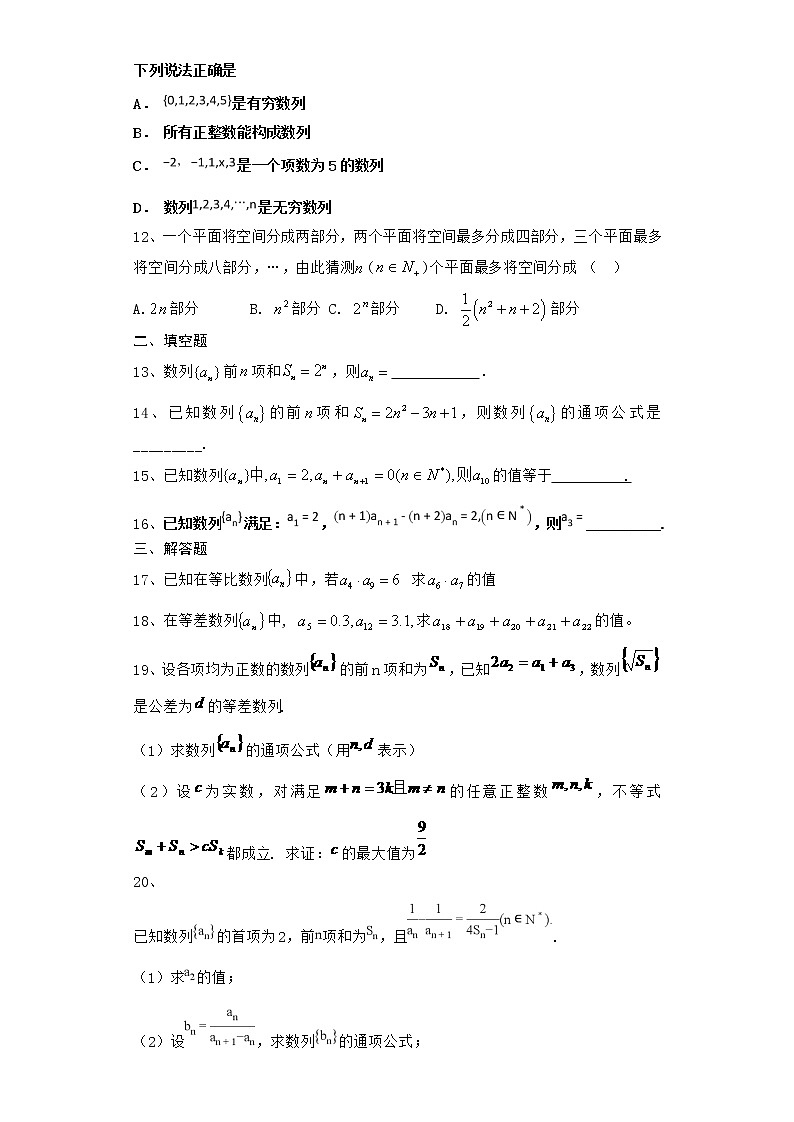 下列说法正确是
A. {0,1,2,3,4,5}是有穷数列
B. 所有正整数能构成数列
C. −2，−1,1,x,3是一个项数为5的数列
D. 数列1,2,3,4,⋯,n是无穷数列
12、一个平面将空间分成两部分,两个平面将空间最多分成四部分,三个平面最多
将空间分成八部分,…,由此猜测n（n∈N₊）个平面最多将空间分成 （ ）
A.2n部分 B. n²部分 C. 2ⁿ部分 D. 1/2(n²+n+2)部分
二、填空题
13、数列{aₙ}前n项和Sₙ=2ⁿ,则aₙ=___________.
14、已知数列{aₙ}的前n项和Sₙ=2n²−3n+1,则数列{aₙ}的通项公式是
_________.
15、已知数列{aₙ}中,a₁=2,aₙ+aₙ₊₁=0(n∈N*),则a₁₀的值等于_________.
16、已知数列{aₙ}满足：a₁=2，(n+1)aₙ₊₁-(n+2)aₙ=2,(n∈N*)，则a₃=_________.
三、解答题
17、已知在等比数列{aₙ}中,若a₄·a₉=6 求a₆·a₇的值
18、在等差数列{aₙ}中, a₅=0.3,a₁₂=3.1,求a₁₈+a₁₉+a₂₀+a₂₁+a₂₂的值。
19、设各项均为正数的数列{aₙ}的前n项和为Sₙ,已知2a₂=a₁+a₃,数列{√Sₙ}
是公差为d的等差数列.
（1）求数列{aₙ}的通项公式（用n,d表示）
（2）设c为实数,对满足m+n=3k且m≠n的任意正整数m,n,k,不等式
Sₘ+Sₙ>cSₖ都成立. 求证:c的最大值为9/2
20、
已知数列{aₙ}的首项为2,前n项和为Sₙ,且1/aₙ−1/aₙ₊₁=2/(4Sₙ−1)(n∈N*).
（1）求a₂的值;
（2）设bₙ=aₙ/(aₙ₊₁−aₙ),求数列{bₙ}的通项公式;